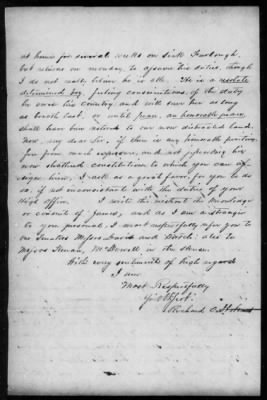 at home for several weeks on sick Furlough,
but returns on monday to assume his duties, though
I do not really believe he is able. He is a resolute
determined boy, feeling conscientious of the duty
he owes his country, and will serve her as long
as breath last, or until peace, an honorable peace
shall have been restored to our now distracted land.
Now, my dear Sir, if there is any honorable position,
far from much exposure, and not injurious to his
now shattered constitution to which you can as-
sign him, I ask as a great favor, for you to do
so, if not inconsistent with the duties of your
High Office. I write this without the knowledge
or consent of James, and as I am a stranger
to you personal, I most respectfully refer you to
our Senators Messrs Davis and Dortch also to
Messrs Kenan, McDowell in the House.
With every sentiment of high regard
I am
Most Respectfully
Yr Obt Svt.
Richard